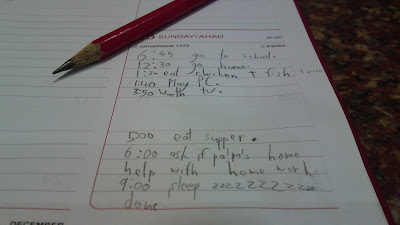 SUNDAY/AHAD
Jamadilawal 1433
6:45 go to school.
12:30 go home.
1:20 eat chicken + fish
1:40 Play PC.
3:50 Wath tv.
5:00 eat supper.
6:00 ask if pa'pa's home
help with home work.
9:00 sleep zzzzzzzzzz
done
DECEMBER